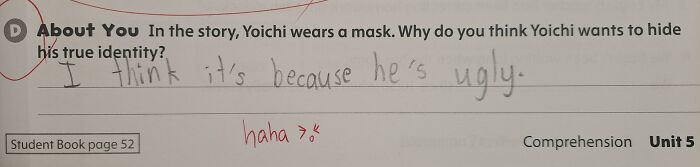 D About You In the story, Yoichi wears a mask. Why do you think Yoichi wants to hide
his true identity?
I think it's because he's ugly.
haha
Student Book page 52
Comprehension Unit 5